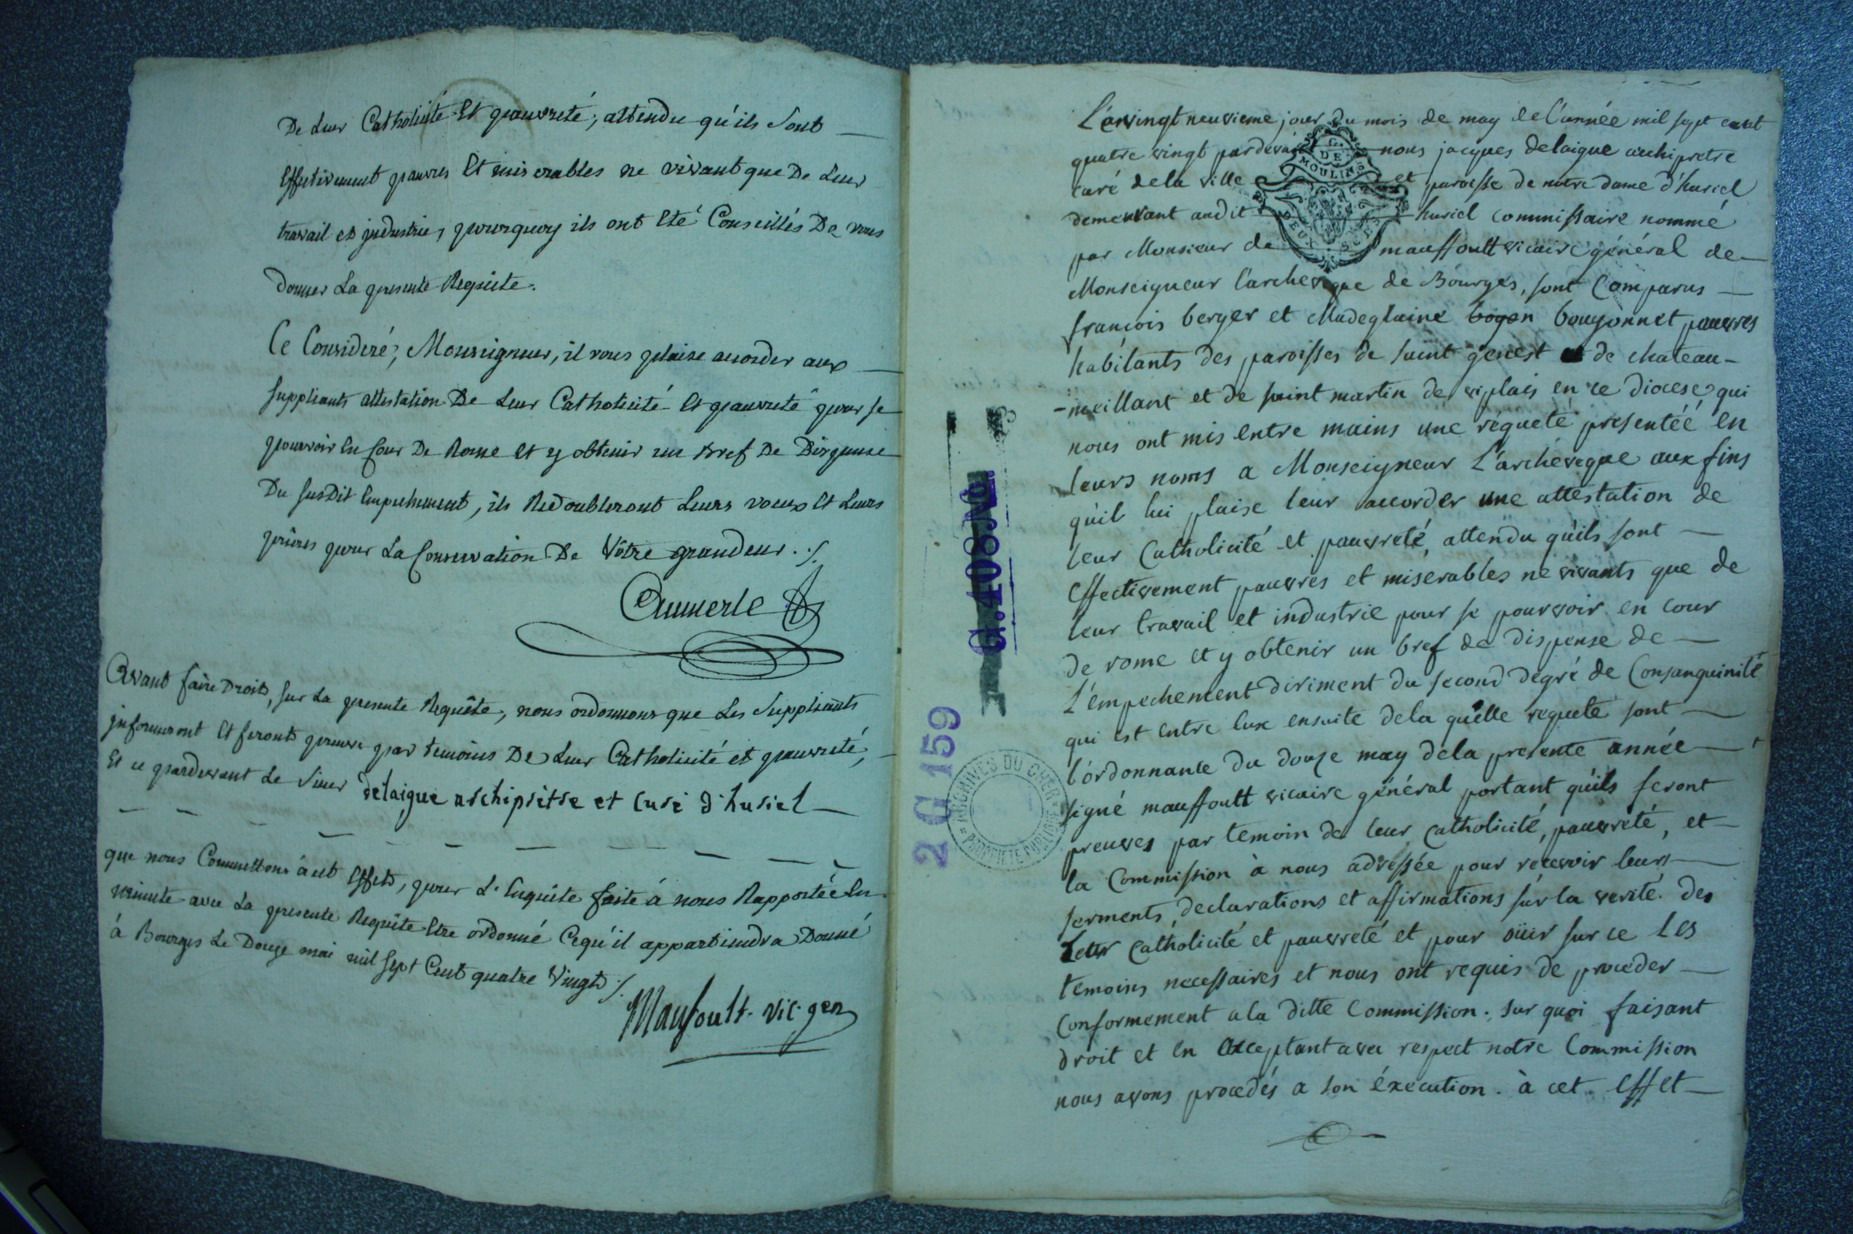 De Leur Catholicité Et pauvreté, attendu qu'ils sont
Effectivement pauvres Et miserables ne vivant que De Leur
travail et industrie, pourquoy ils ont Eté Conseillés De vous
donner La presente Requête.
Ce Consideré, Monseigneur, il vous plaise accorder aux
suppliants attestation De Leur Catholicité Et pauvreté pour se
pourvoir En Cour De Rome Et y obtenir un Bref De Dispense
Du susdit Empechement, ils Redoubleront Leurs voeux Et Leurs
prieres pour La Conservation De Vôtre grandeur ./.
Aumerle
Avant faire Droit, sur La presente Requête, nous ordonnons que Les Suppliants
informeront Et feront preuve par temoins De Leur Catholicité et pauvreté,
Et ce pardevant Le Sieur delaigue archiprêtre et Curé d'huriel
que nous Commettons à cet Effet, pour L'Enquête faite à nous Rapportée En
minute avec La presente Requête Etre ordonné Cequ'il appartiendra Donné
à Bourges Le Douze mai mil sept Cent quatre Vingt ./.
Maufoult. vic. gen
L'an vingt neuvieme jour du mois de may de l'année mil sept cent
quatre vingt pardevant nous jacques delaigue archipretre
curé de la ville et paroisse de notre dame d'huriel
demeurant audit huriel commissaire nommé
par Monsieur de mauffoult vicaire général de
Monseigneur l'archeveque de Bourges, sont Comparus
françois berger et Madeglaine bogon bouyonnet pauvres
habitants des paroisses de saint genest et de chateau-
-meillant et de saint martin de viplais en ce diocese qui
nous ont mis entre mains une requete presentéé en
leurs noms a Monseigneur L'archéveque aux fins
qu'il lui plaise leur accorder une attestation de
leur Catholicité et pauvreté, attendu qu'ils sont
Effectivement pauvres et miserables ne vivants que de
leur travail et industrie pour se pourvoir en cour
de rome et y obtenir un bref de dispense de
L'empechement diriment du second degré de Consanguinité
qui est entre Eux ensuite de la quelle requete sont
l'ordonnance du douze may de la presente année
signé mauffoultt vicaire général portant qu'ils feront
preuves par temoin de leur catholicité, pauvreté, et
la Commission à nous adressée pour recevoir leurs
serments, declarations et affirmations sur la verité. des
leur catholicité et pauvreté et pour oüir sur ce les
temoins necessaires et nous ont requis de proceder
conformement a la ditte Commission. sur quoi faisant
droit et en acceptant avec respect notre Commission
nous avons procedés a son éxecution. à cet Effet
G. DE MOULINS
DEUX SE
G. 408 No
2 G 159
ARCHIVES DU CHER
PROPRIÉTÉ PUBLIQUE